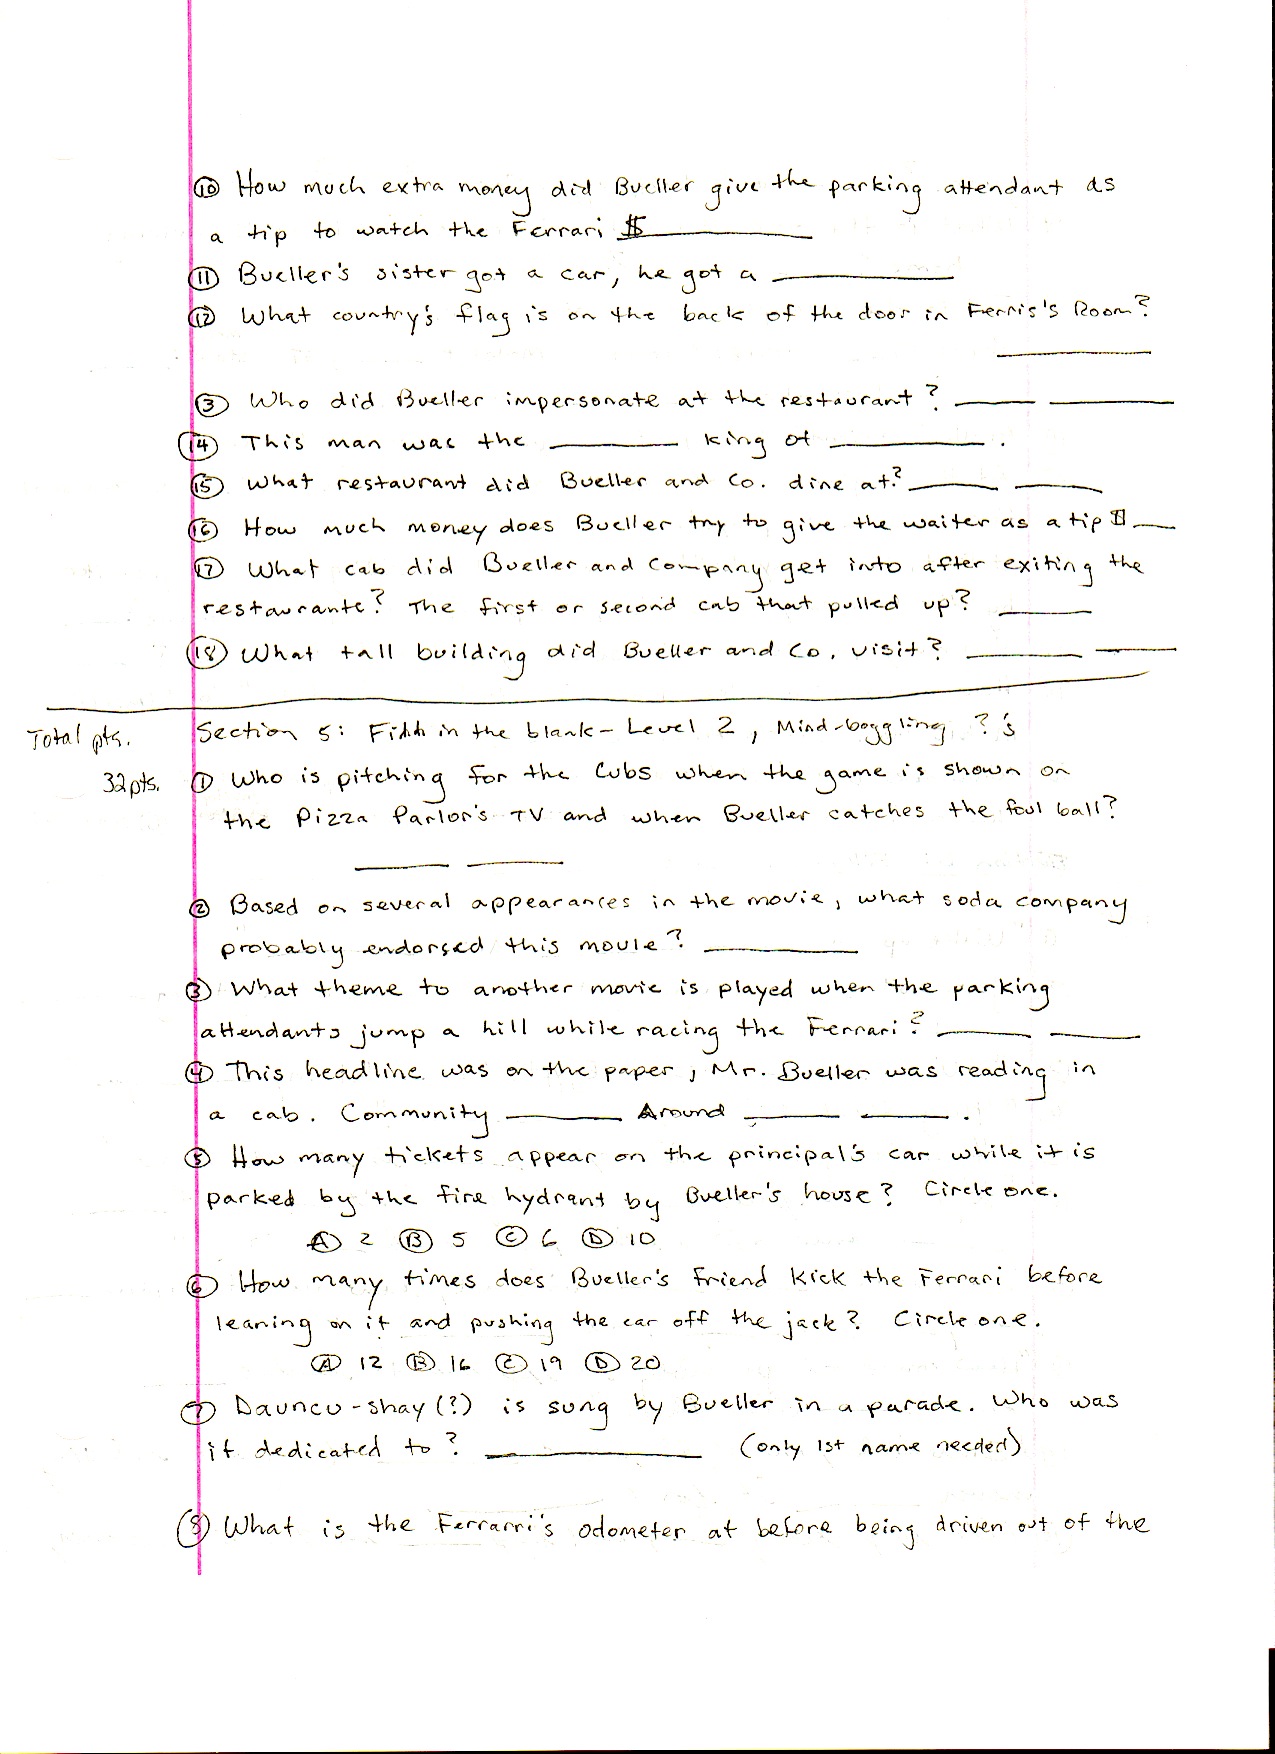 ⑩ How much extra money did Bueller give the parking attendant as
a tip to watch the Ferrari $______
⑪ Bueller's sister got a car, he got a ______
⑫ What country's flag is on the back of the door in Ferris's Room?
______
③ Who did Bueller impersonate at the restaurant? ______ ______
⑭ This man was the ______ king of ______.
⑮ What restaurant did Bueller and Co. dine at? ______ ______
⑯ How much money does Bueller try to give the waiter as a tip $___
⑰ What cab did Bueller and Company get into after exiting the
restaurante? The first or second cab that pulled up? ______
⑱ What tall building did Bueller and Co. visit? ______ ______
Total pts. Section 5: Fill in the blank - Level 2, Mind-boggling ?'s
32 pts. ① Who is pitching for the Cubs when the game is shown on
the Pizza Parlor's TV and when Bueller catches the foul ball?
______ ______
② Based on several appearances in the movie, what soda company
probably endorsed this movie? ______
③ What theme to another movie is played when the parking
attendants jump a hill while racing the Ferrari? ______ ______
④ This headline was on the paper, Mr. Bueller was reading in
a cab. Community ______ Around ______ ______.
⑤ How many tickets appear on the principal's car while it is
parked by the fire hydrant by Bueller's house? Circle one.
Ⓐ 2 Ⓑ 5 Ⓒ 6 Ⓓ 10
⑥ How many times does Bueller's friend kick the Ferrari before
leaning on it and pushing the car off the jack? Circle one.
Ⓐ 12 Ⓑ 16 Ⓒ 19 Ⓓ 20
⑦ Dauncu-shay (?) is sung by Bueller in a parade. Who was
it dedicated to? ______ (only 1st name needed)
⑧ What is the Ferrarri's odometer at before being driven out of the